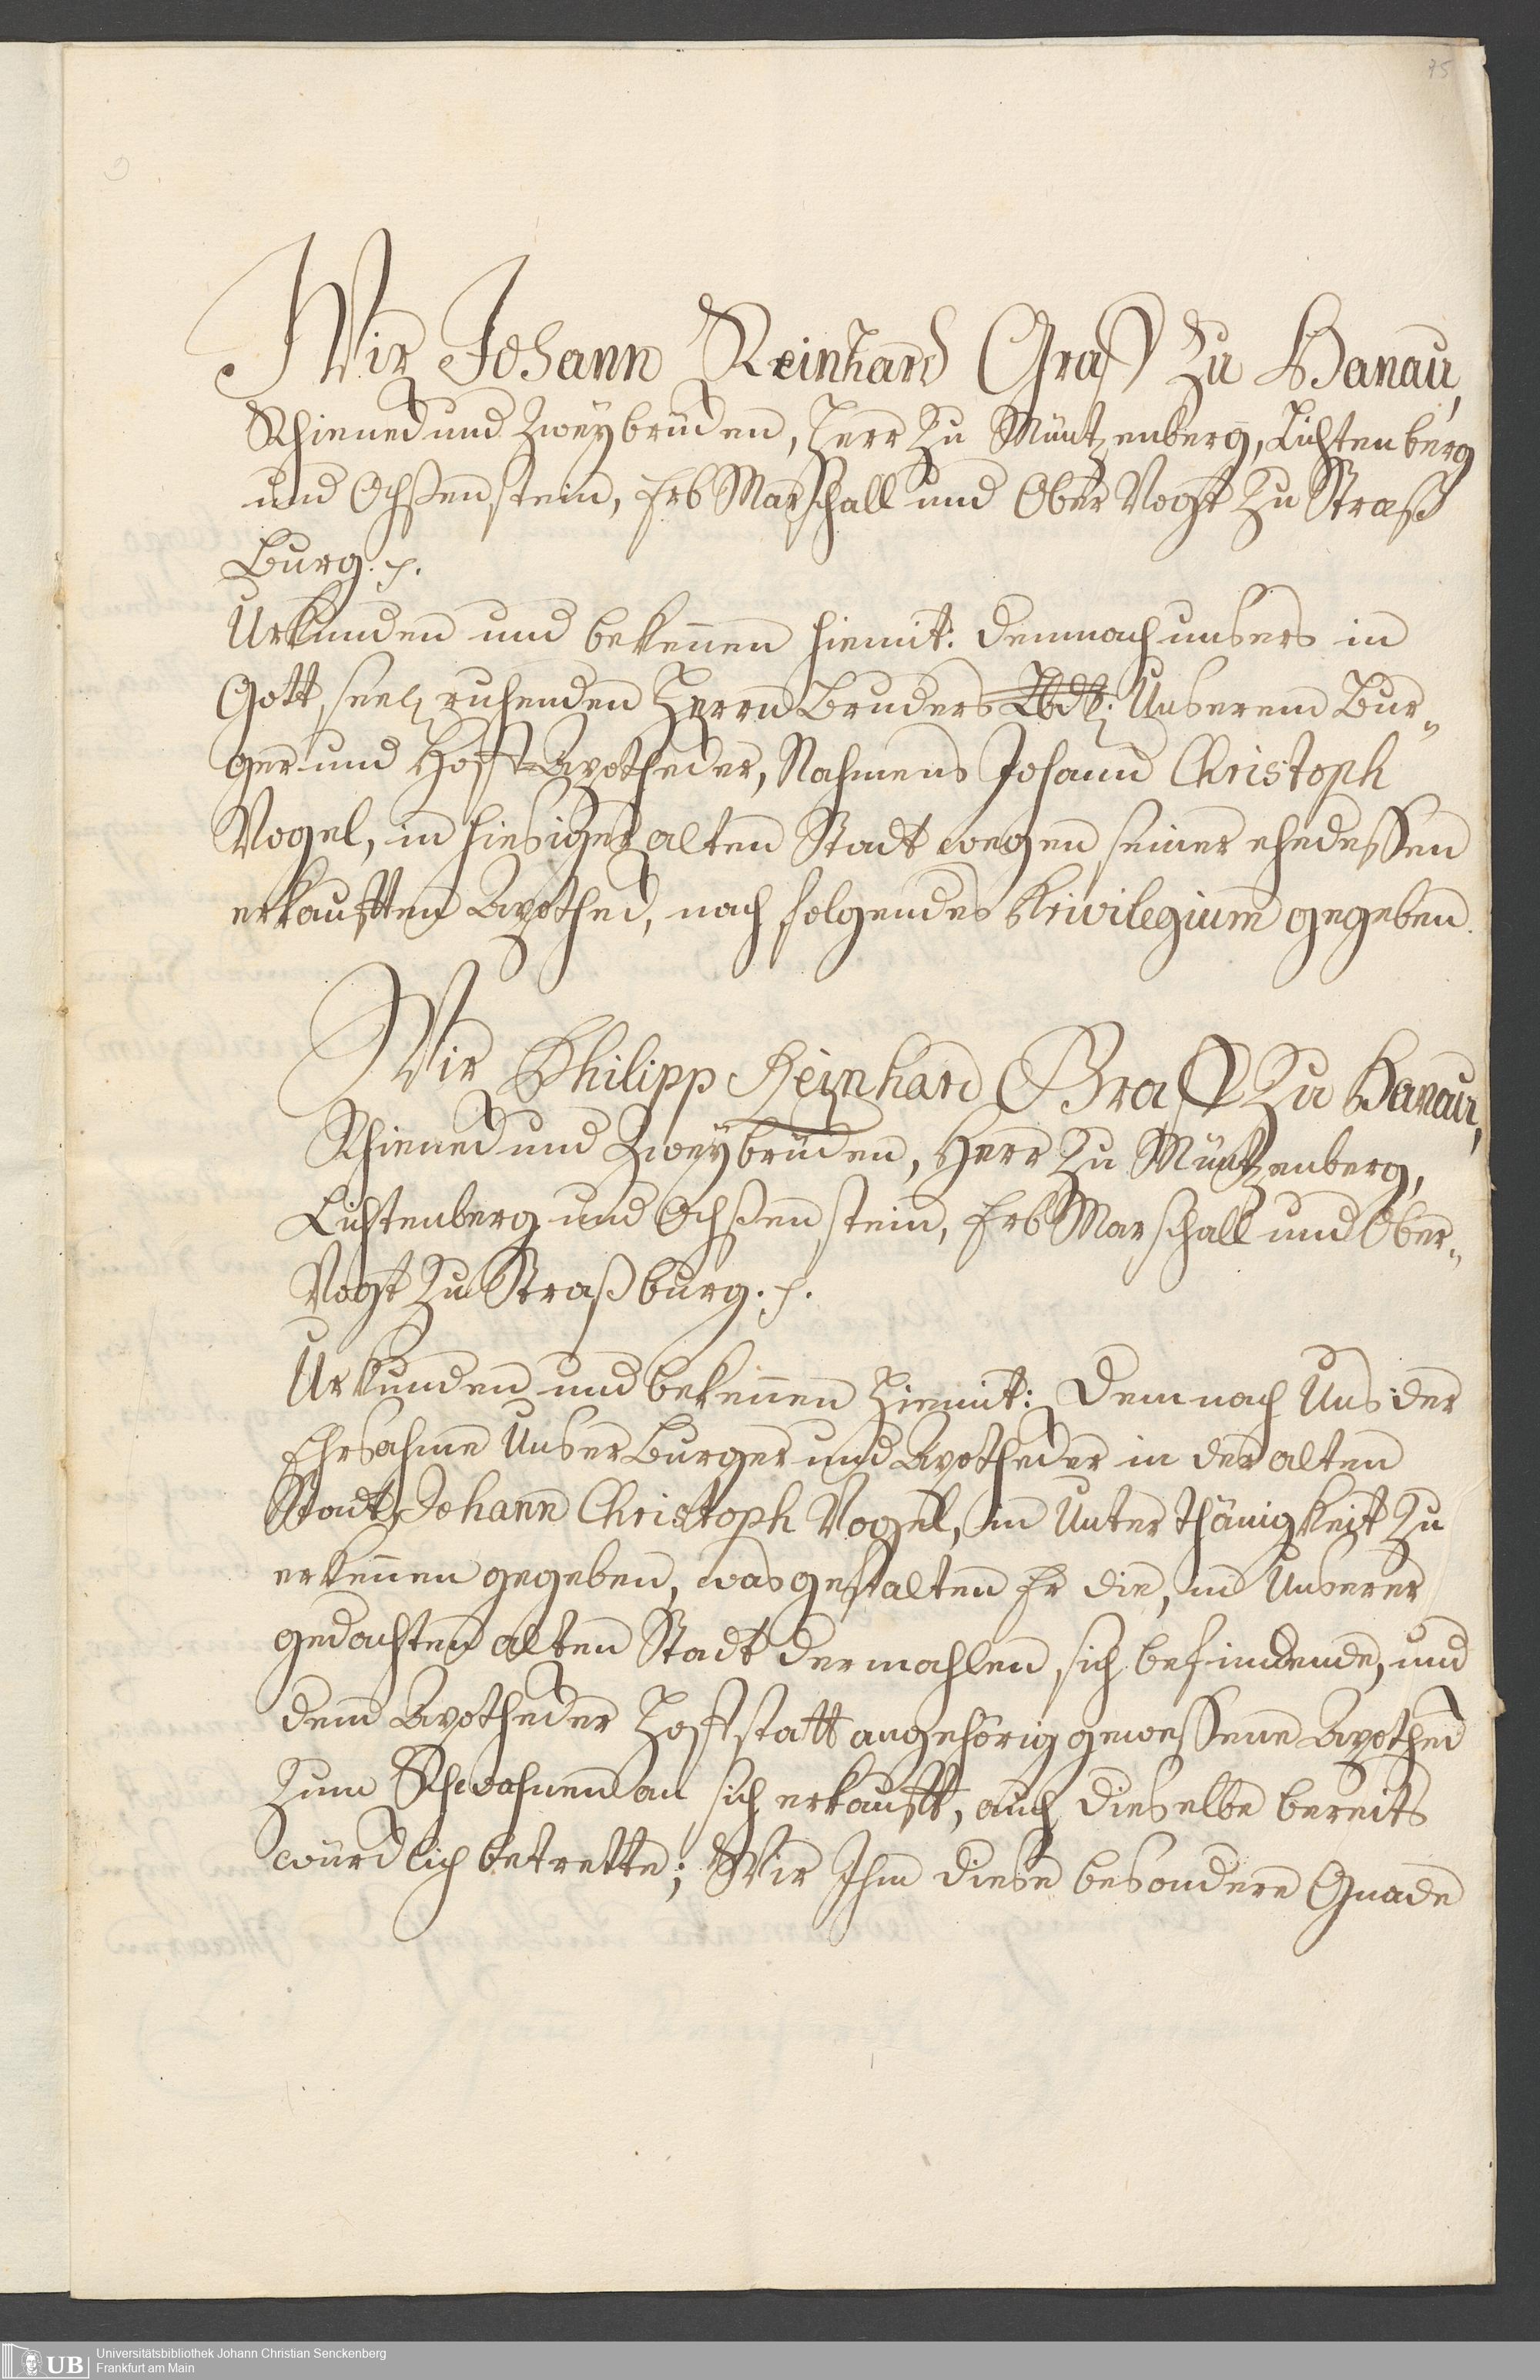 75
Wir Johann Reinhard Graff zu Hanau,
Rhieneck und Zweybrücken, Herr zu Müntzenberg, Lichtenberg
und Ochßenstein, Erb Marschall und Ober Vogt zu Straß
Burg. p.
Urkunden und bekennen hiemit: demnach unsers in
Gott seel. ruhenden Herrn Bruders Lbdl: Unserem Bur„
ger und Hoff-Apothecker, Nahmens Johann Christoph
Vogel, in hiesiger alten Stadt wegen seiner ehedessen
erkaufften Apotheck, nach folgendes Privilegium gegeben.
Wir Philipp Reinhard Graff zu Hanau,
Rhieneck und Zweybrücken, Herr zu Müntzenberg,
Lichtenberg und Ochßenstein, Erb Marschall und Ober„
Vogt zu Straßburg. p.
Urkunden und bekennen hiemit: Demnach Uns der
Ehrsahme Unser Burger und Apothecker in der alten
Stadt, Johann Christoph Vogel, in Unterthänigkeit zu
erkennen gegeben, was gestalten Er die, in Unserer
gedachten alten Stadt dermahlen sich befindende, und
dem Apothecker Hoffstatt angehörig gewessene Apotheck
zum Schwahnen an sich erkaufft, auch dieselbe bereits
würcklich betrette; Wir Ihm diese besondere Gnade
UB
Universitätsbibliothek Johann Christian Senckenberg
Frankfurt am Main